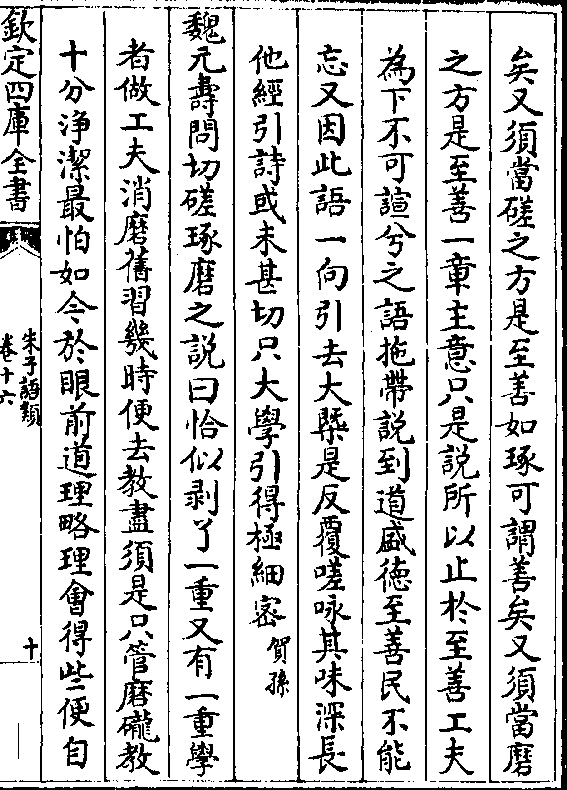 矣又須當磋之方是至善如琢可謂善矣又須當磨
之方是至善一章主意只是説所以止於至善工夫
為下不可諠兮之語拖帶説到道盛徳至善民不能
忘又因此語一向引去大槩是反覆嗟咏其味深長
他經引詩或未甚切只大學引得極細密賀孫
魏元壽問切磋琢磨之説曰恰似剥了一重又有一重學
者做工夫消磨舊習幾時便去教盡須是只管磨礲教
十分浄潔最怕如今於眼前道理略理會得些便自
欽定四庫全書
朱子語類
卷十六
十